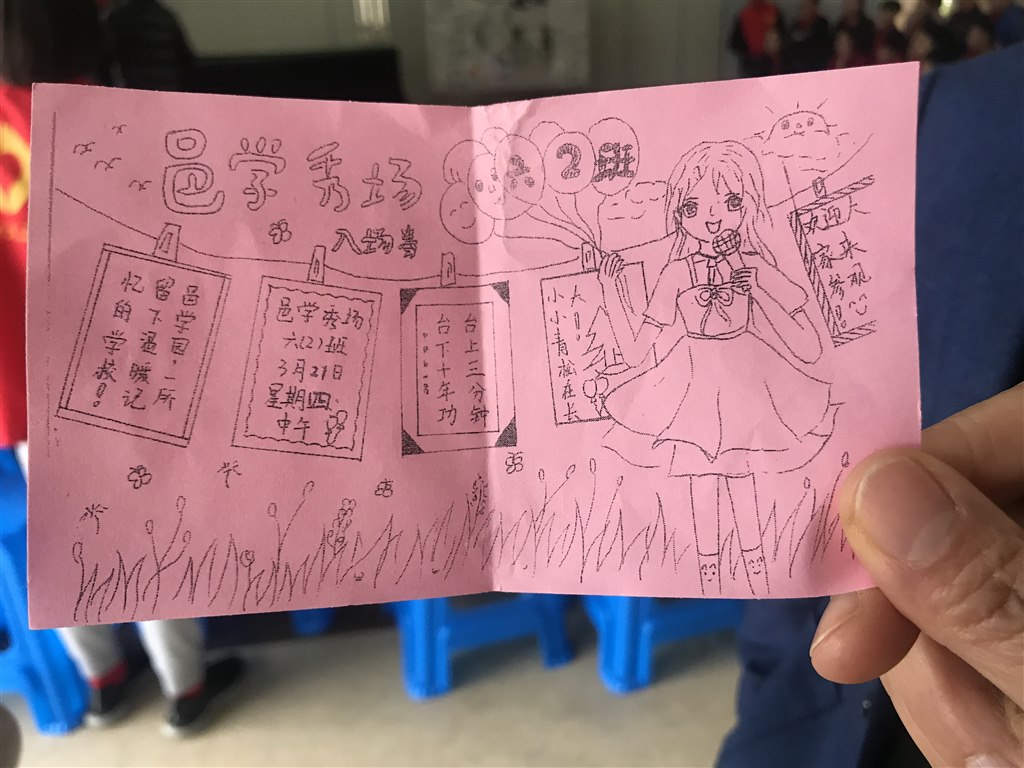 邑学秀场
六2班
入场券
邑学园,一所
留下温暖记
忆的学校!
邑学秀场
六(2)班
3月21日
星期四
中午
台上三分钟
台下十年功
小小青松在长
大!
欢迎大
家来观